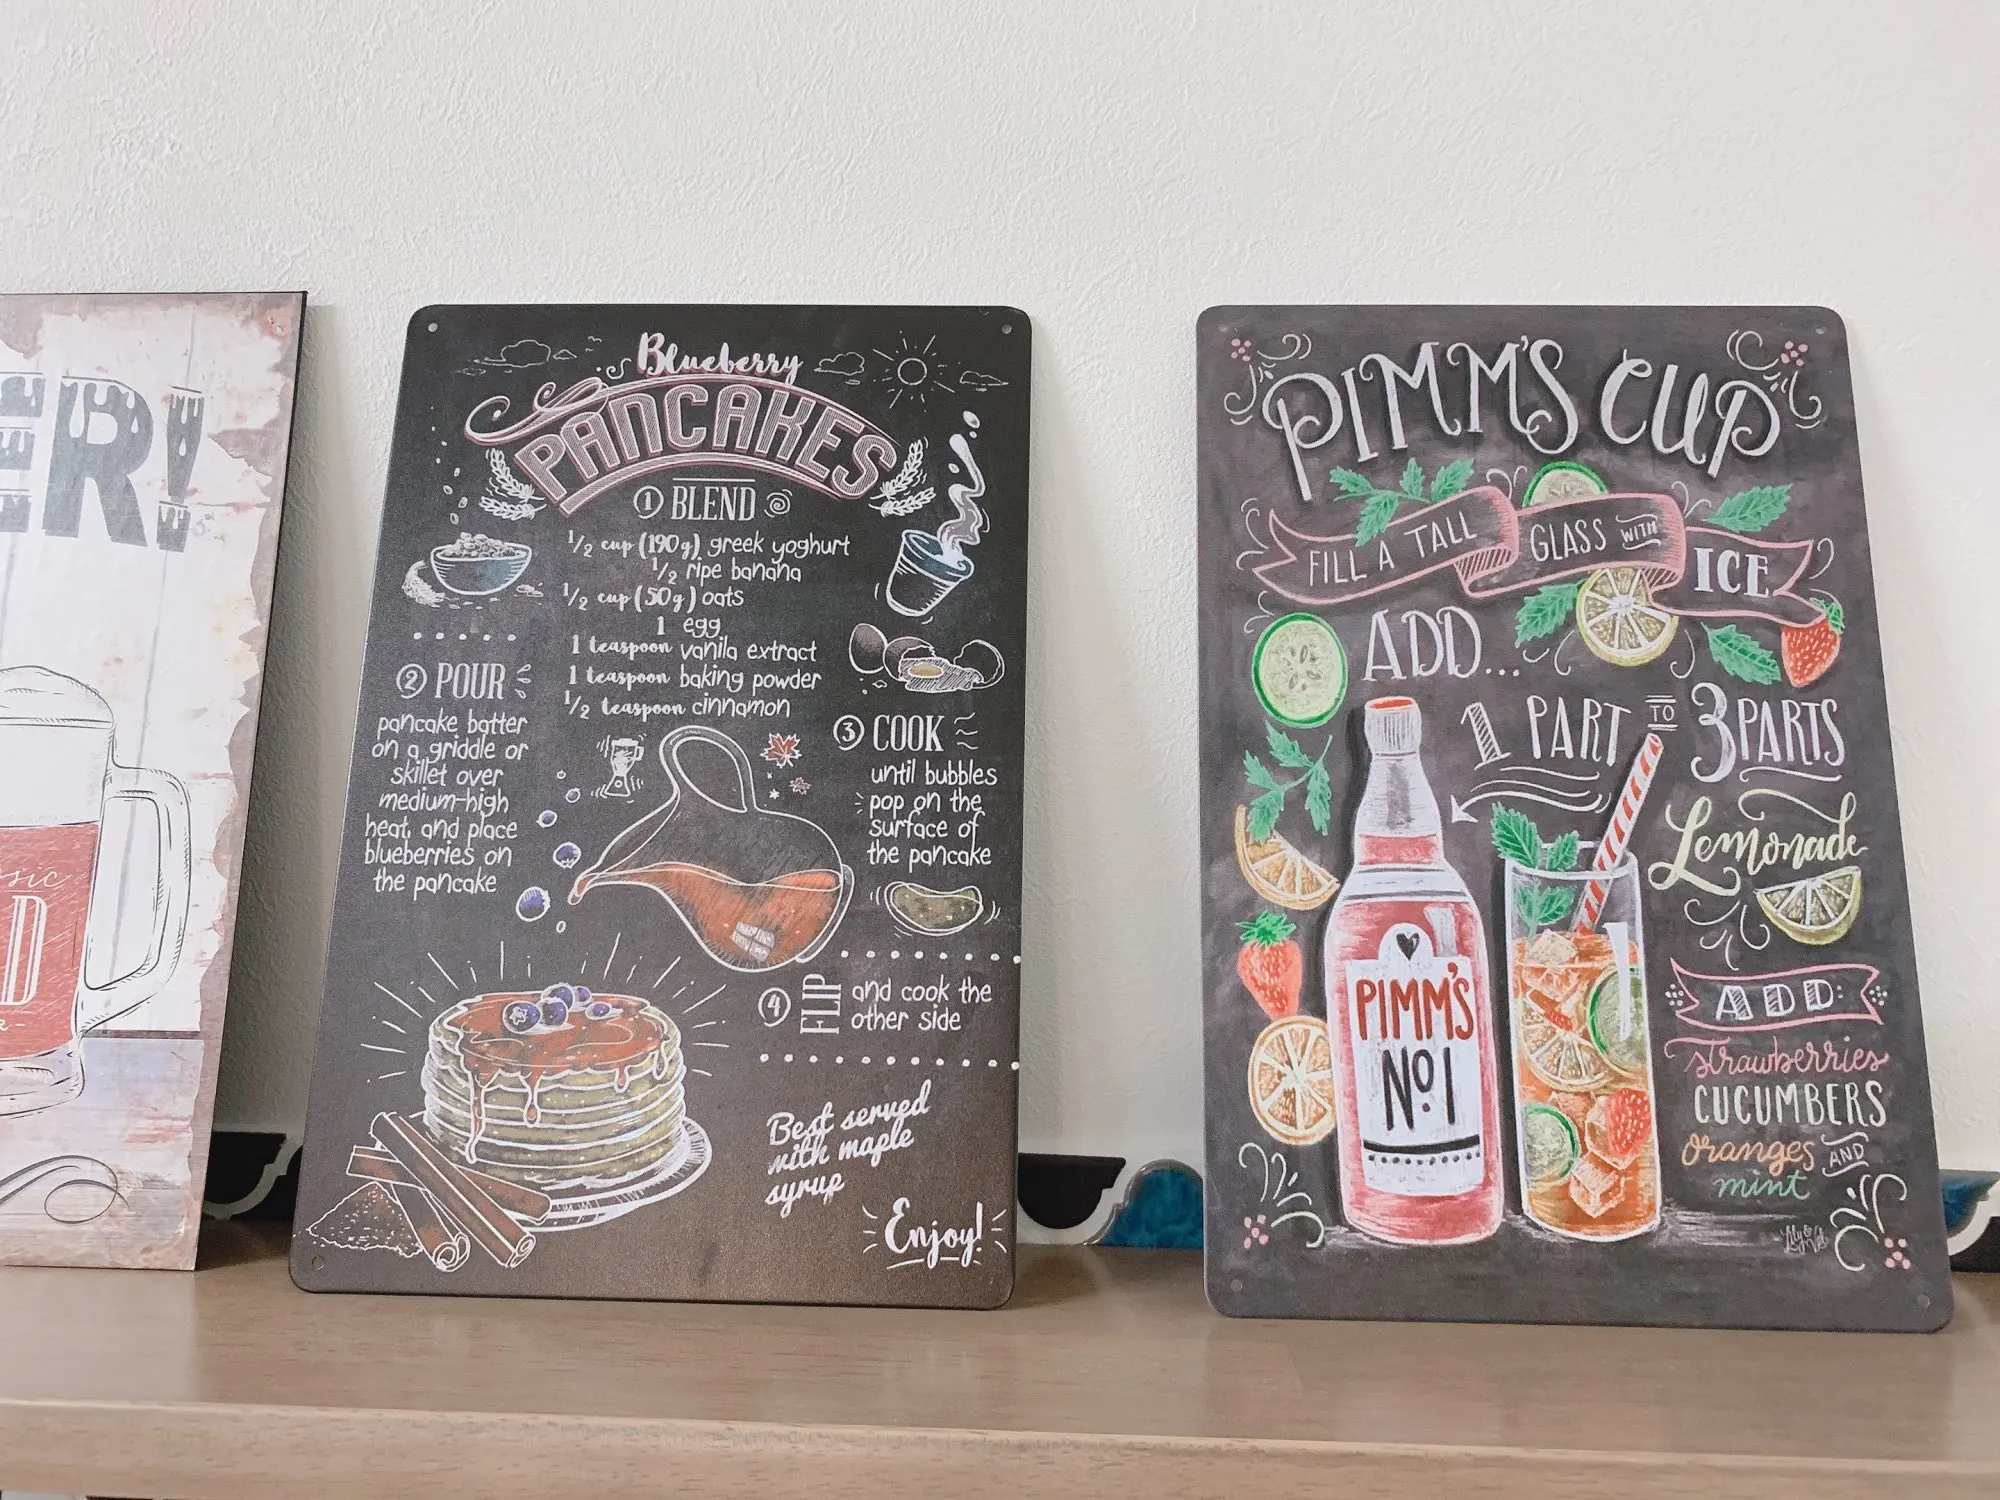 ER!
sic
D
R-
Blueberry
PANCAKES
1 BLEND
1/2 cup (190g) greek yoghurt
1/2 ripe banana
1/2 cup (50g) oats
1 egg
1 teaspoon vanila extract
1 teaspoon baking powder
1/2 teaspoon cinnamon
2 POUR
pancake batter
on a griddle or
skillet over
medium-high
heat, and place
blueberries on
the pancake
3 COOK
until bubbles
pop on the
surface of
the pancake
4 FLIP
and cook the
other side
Best served
with maple
syrup
Enjoy!
PIMM'S CUP
FILL A TALL GLASS WITH ICE
ADD...
1 PART TO 3 PARTS
Lemonade
PIMM'S
No1
ADD:
strawberries
CUCUMBERS
oranges AND
mint
Lily & Val